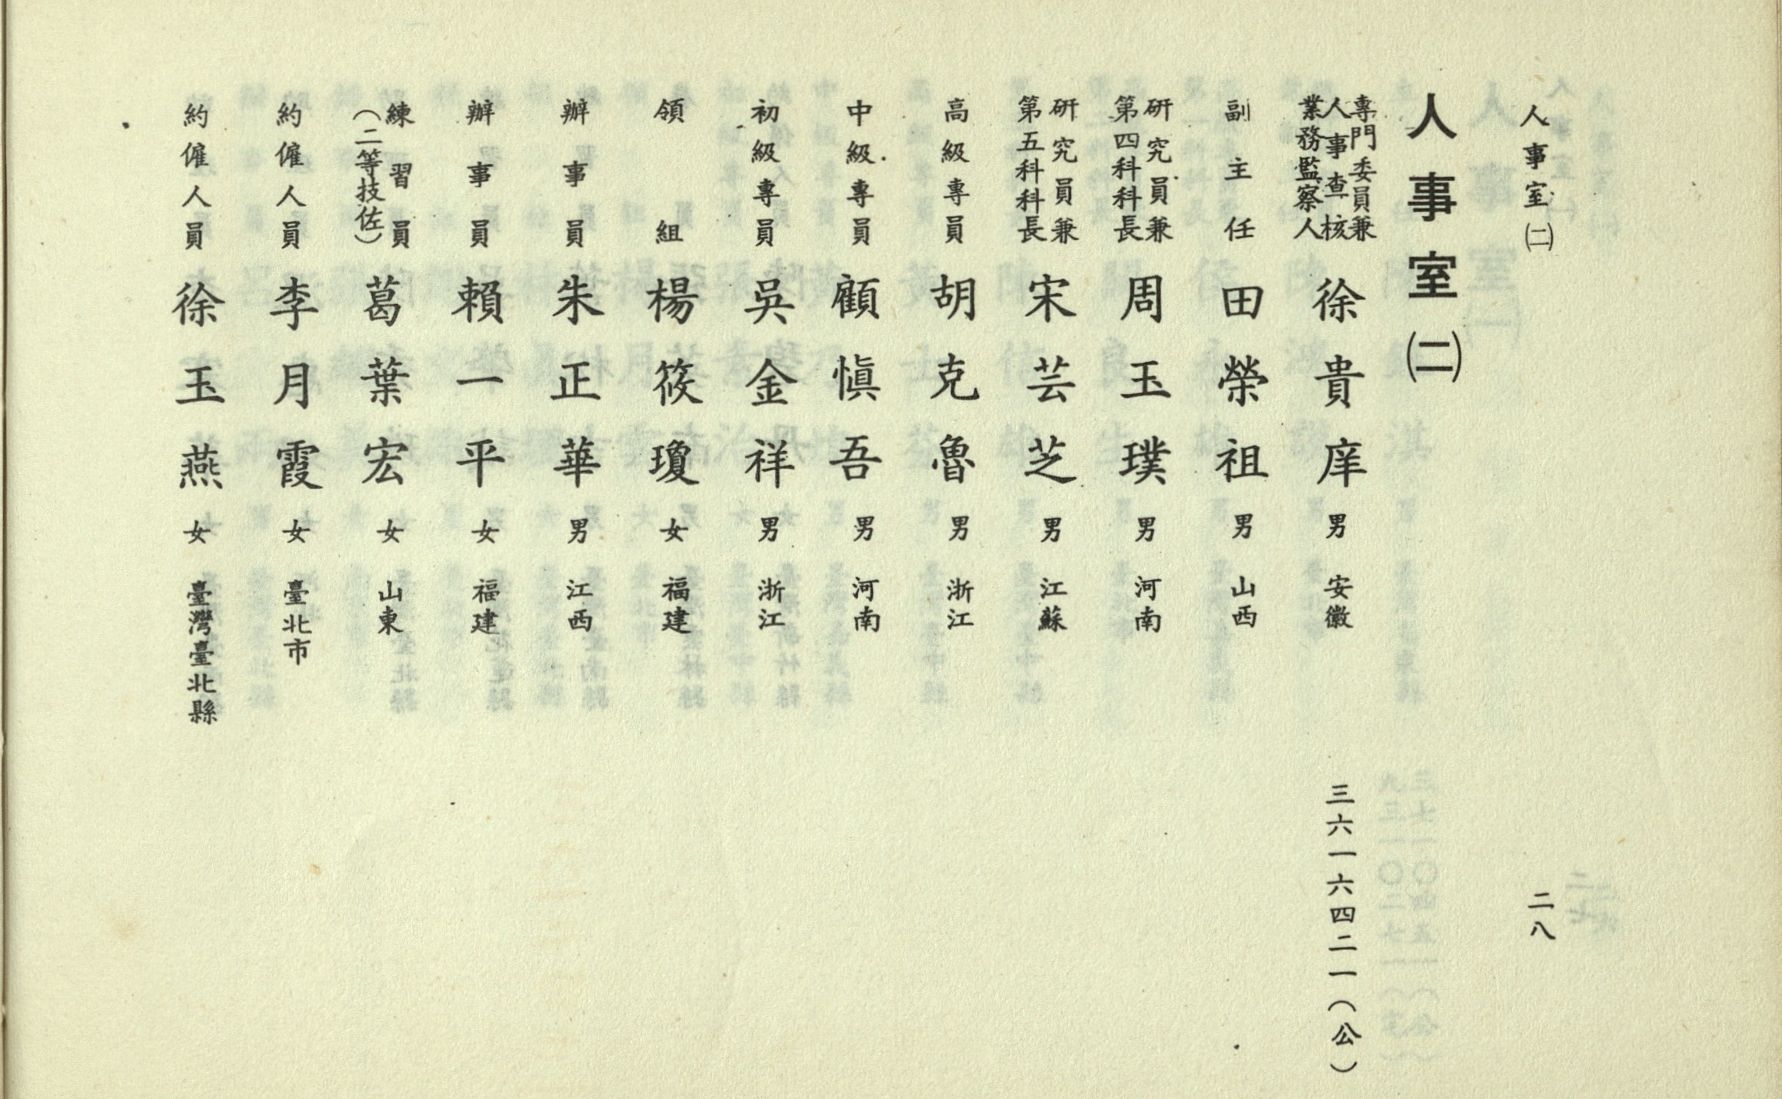 人事室㈡
二八
人事室㈡
專門委員兼人事查核業務監察人 徐貴庠 男 安徽 三六一六四二一(公)
副主任 田榮祖 男 山西
研究員兼第四科科長 周玉璞 男 河南
研究員兼第五科科長 宋芸芝 男 江蘇
高級專員 胡克魯 男 浙江
中級專員 顧愼吾 男 河南
初級專員 吳金祥 男 浙江
領組 楊筱瓊 女 福建
辦事員 朱正華 男 江西
辦事員 賴一平 女 福建
練習員(二等技佐) 葛葉宏 女 山東
約僱人員 李月霞 女 臺北市
約僱人員 徐玉燕 女 臺灣臺北縣